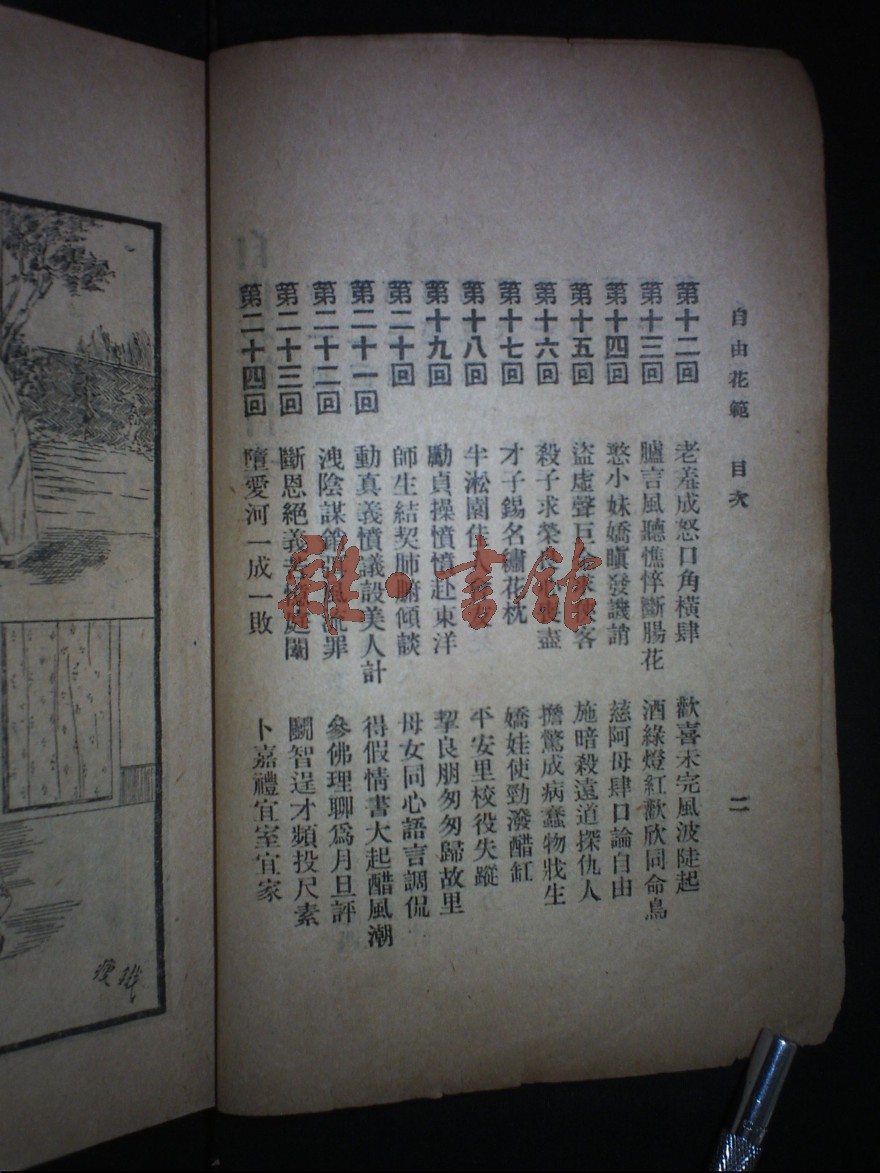 自由花範 目次 二
第十二回 老羞成怒口角橫肆 歡喜未完風波陡起
第十三回 臚言風聽憔悴斷腸花 酒綠燈紅歡欣同命鳥
第十四回 憨小妹嬌瞋發譏誚 慈阿母肆口論自由
第十五回 盜虛聲巨 客 施暗殺遠道探仇人
第十六回 殺子求榮 盡 擔驚成病蠢物戕生
第十七回 才子錫名繡花枕 嬌娃使勁潑醋缸
第十八回 半淞園佳 平安里校役失蹤
第十九回 勵貞操憤憤赴東洋 挈良朋匆匆歸故里
第二十回 師生結契肺腑傾談 母女同心語言調侃
第二十一回 動真義憤議設美人計 得假情書大起醋風潮
第二十二回 洩陰謀 罪 參佛理聊爲月旦評
第二十三回 斷恩絕義 庭闈 鬭智逞才頻投尺素
第二十四回 墮愛河一成一敗 卜嘉禮宜室宜家
雜·書館